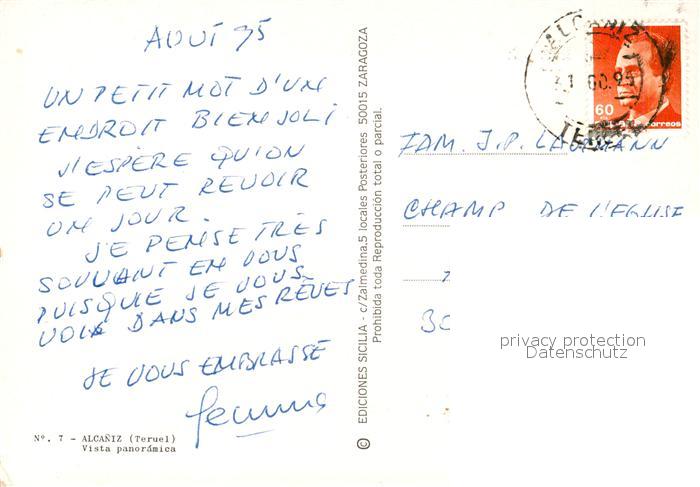 AOUT 95
UN PETIT MOT D'UN
ENDROIT BIEN JOLI
J'ESPÈRE QU'ON
SE PEUT REVOIR
UN JOUR.
JE PENSE TRÈS
SOUVANT EN VOUS
PUISQUE JE VOUS
VOIX DANS MES RÊVES
JE VOUS EMBRASSE
Nº. 7 - ALCAÑIZ (Teruel)
Vista panorámica
© EDICIONES SICILIA - c/Zalmedina,5 locales Posteriores 50015 ZARAGOZA
Prohibida toda Reproducción total o parcial.
ALCAÑIZ
60
correos
FAM. J.P.
CHAMP DE L'EGLISE
privacy protection
Datenschutz